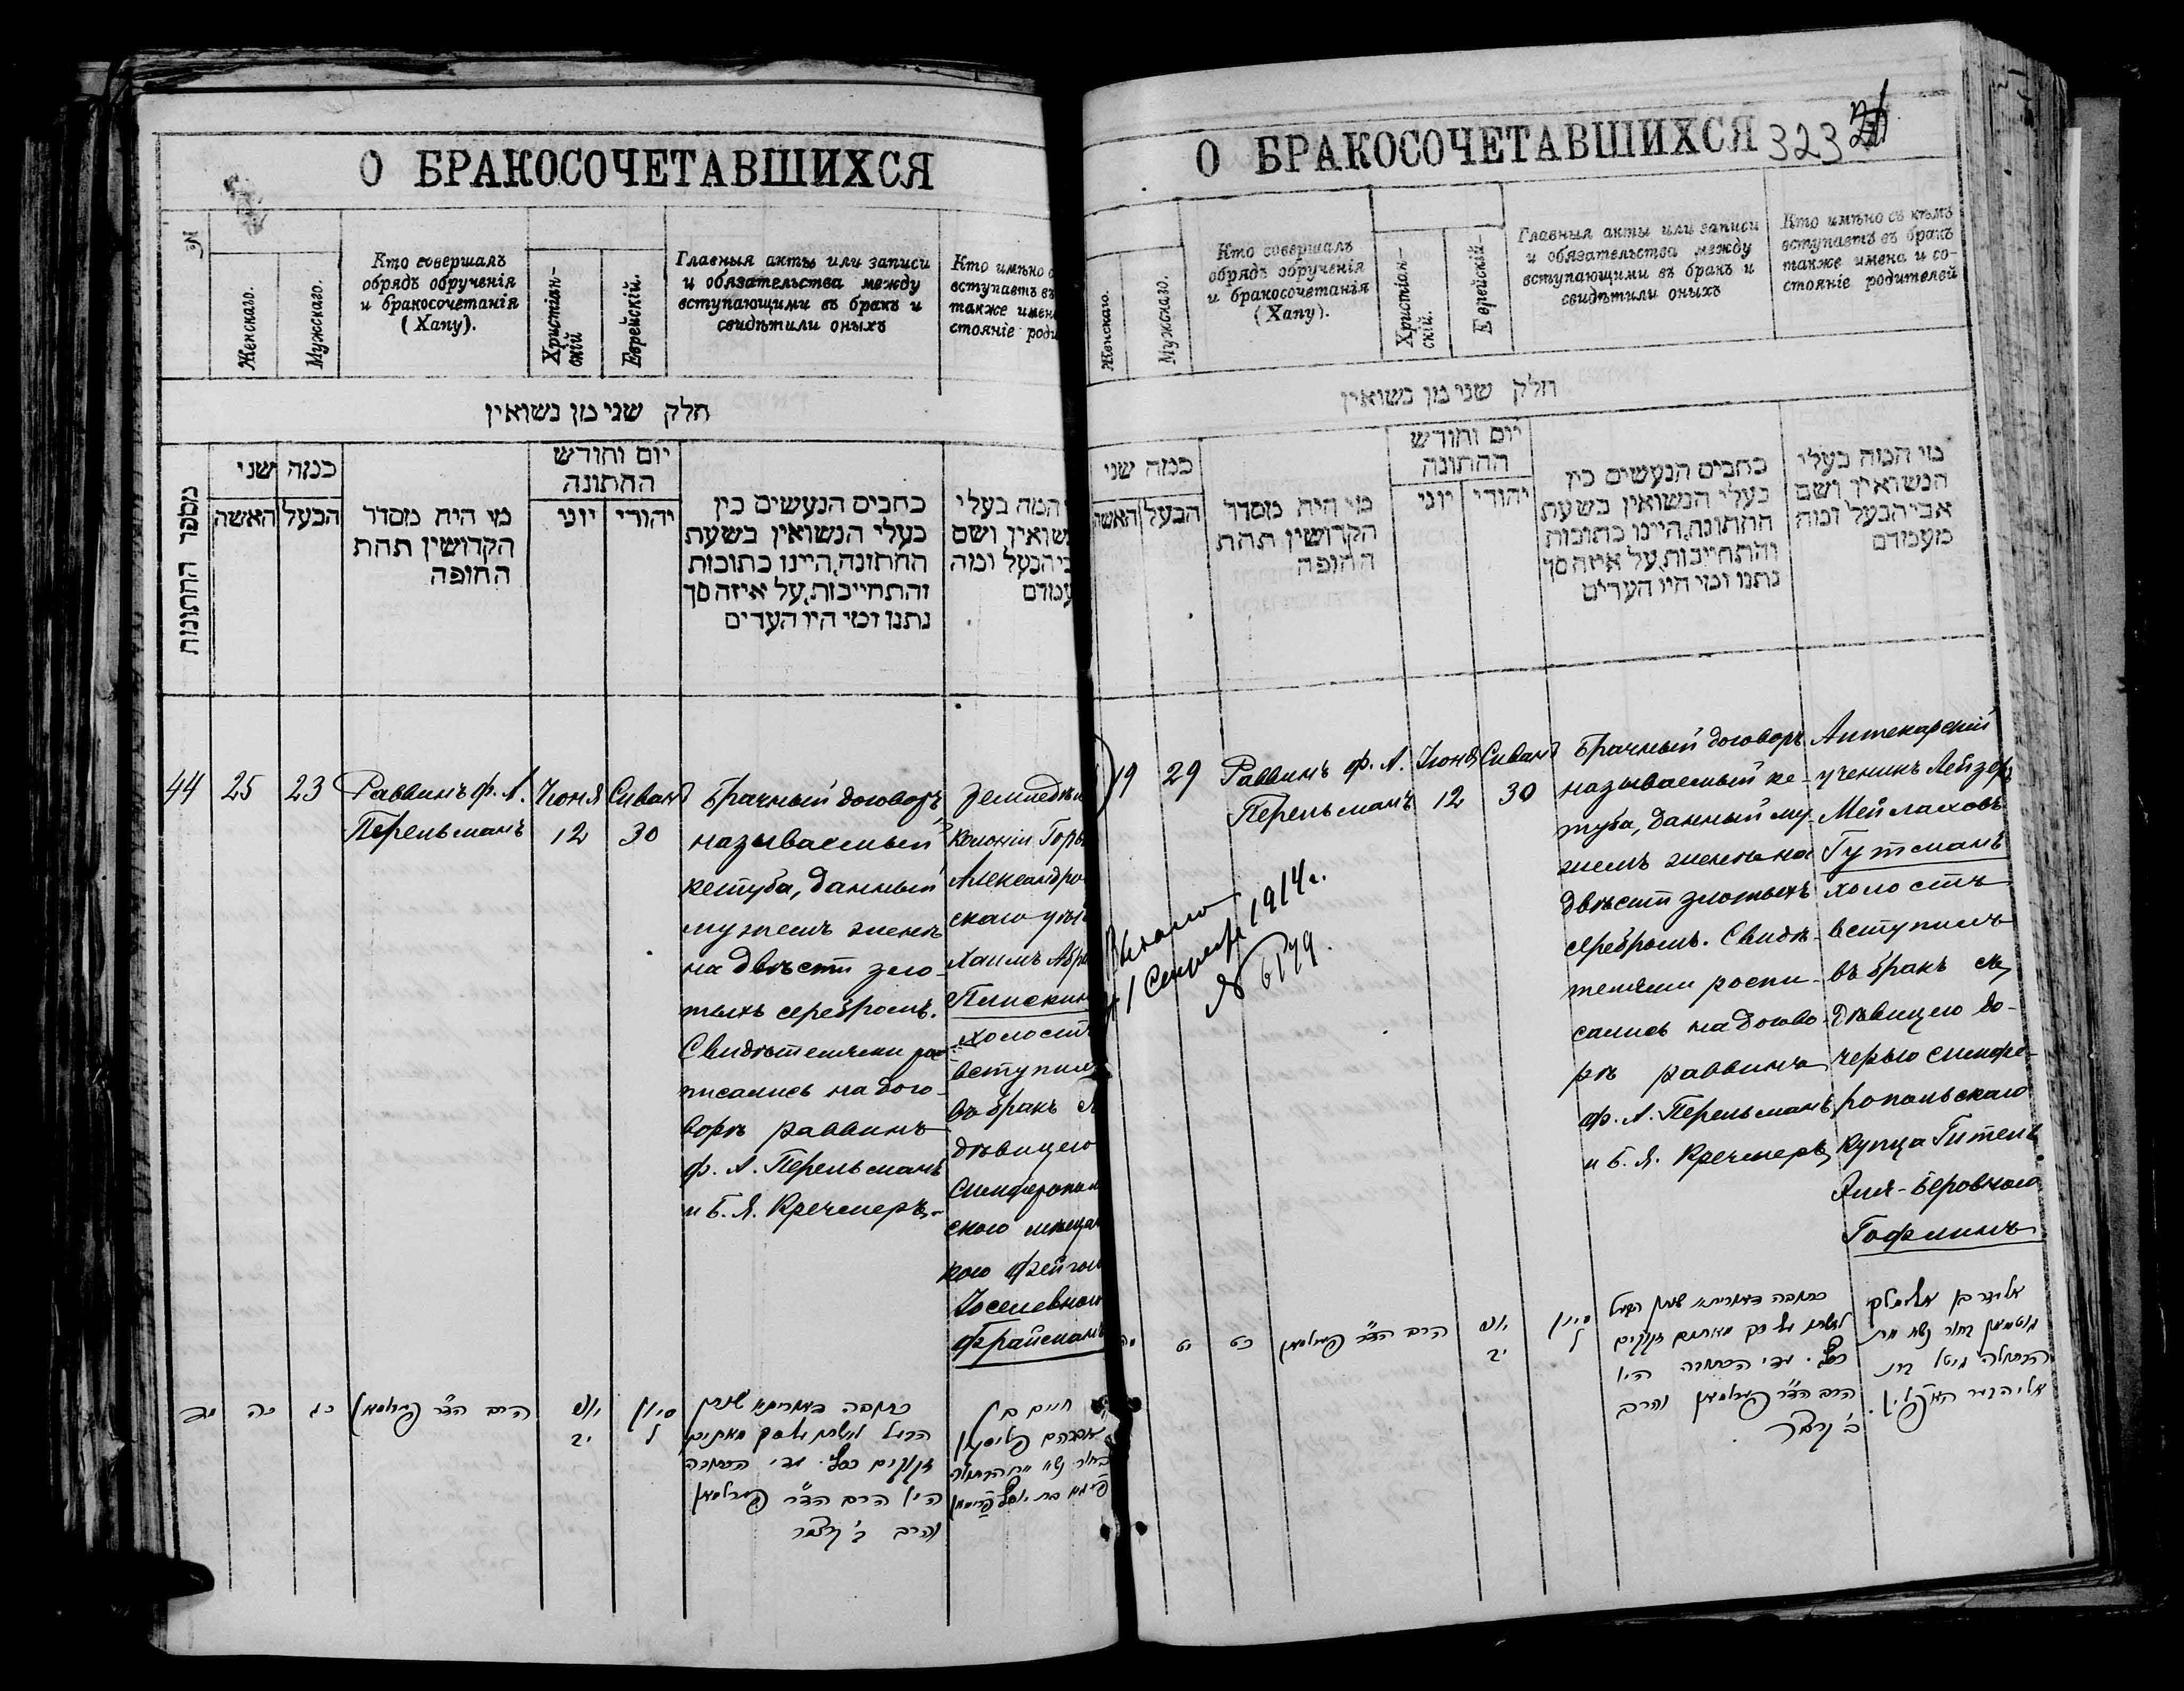 О БРАКОСОЧЕТАВШИХСЯ
№
Женскаго.
Мужскаго.
Кто совершалъ
обрядъ обрученія
и бракосочетанія
(Хапу).
Христіан-
скій
Еврейскій.
Главныя акты или записи
и обязательства между
вступающими въ бракъ и
свидѣтили оныхъ
Кто имѣно
вступаетъ въ
также имен
стояніе роди
חלק שני מן נשואין
מספר החתונות
כמה שני
האשה
הבעל
מי היה מסדר
הקדושין תחת
החופה
יום וחודש
החתונה
יוני
יהודי
כתבים הנעשים בין
בעלי הנשואין בשעת
החתונה, היינו כתובות
והתחייבות, על איזה סך
נתנו ומי היו העדים
המה בעלי
שואין ושם
בי הבעל ומה
עמדם
44
25
23
Раввинъ Ф. А.
Перельманъ
Іюня
12
Сиванъ
30
Брачный договоръ
называемый
кетуба, данный
мужемъ женѣ
на двѣсти зло-
тыхъ серебромъ.
Свидѣтелями рос-
писались на дого-
ворѣ раввинъ
Ф. А. Перельманъ
и Б. Я. Кречмеръ.
Колоніи Горь
Александро
скаго уѣз
Хаимъ Абра
Плискин
холостъ
вступилъ
въ бракъ съ
дѣвицею
Симферопол
ского мѣщан
Іоселевною
Фрайсманъ
מד
כה
כג
הרב הד״ר פערלמאן
יוני
יב
סיון
ל
כתובה דאורייתא שנתן
הבעל לאשתו על סך מאתים
זקוקים כסף. עדי הכתובה
היו הרב הד״ר פערלמאן
והרב ב׳ קרעצמר
חיים בן
אברהם פליסקין
בחור נשא את הבתולה
О БРАКОСОЧЕТАВШИХСЯ
323
Женскаго.
Мужскаго.
Кто совершалъ
обрядъ обрученія
и бракосочетанія
(Хапу).
Христіан-
скій.
Еврейскій-
Главныя акты или записи
и обязательства между
вступающими въ бракъ и
свидѣтили оныхъ
Кто имѣно съ кѣмъ
вступаетъ въ бракъ
также имена и со-
стояніе родителей
חלק שני מן נשואין
כמה שני
האשה
הבעל
מי היה מסדר
הקדושין תחת
החופה
יום וחודש
החתונה
יוני
יהודי
כתבים הנעשים בין
בעלי הנשואין בשעת
החתונה, היינו כתובות
והתחייבות, על איזה סך
נתנו ומי היו העדים
מי המה בעלי
הנשואין ושם
אבי הבעל ומה
מעמדם
19
29
Раввинъ Ф. А.
Перельманъ
Іюня
12
Сиванъ
30
Брачный договоръ
называемый ке-
туба, данный му-
жемъ женѣ на
двѣсти злотыхъ
серебромъ. Свидѣ-
телями роспи-
сались на догово-
рѣ раввинъ
Ф. А. Перельманъ
и Б. Я. Кречмеръ
Аптекарскій
ученикъ Лейзеръ
Мейлаховъ
Гутманъ
холостъ
вступилъ
въ бракъ съ
дѣвицею до-
черью Симфе-
ропольскаго
купца Гитель
Беровною
1914 г.
№
יט
כט
הרב הד״ר פערלמאן
יוני
יב
סיון
ל
כתובה דאורייתא שנתן הבעל
לאשתו על סך מאתים זקוקים
כסף. עדי הכתובה היו
הרב הד״ר פערלמאן והרב
ב׳ קרעצמר
אליעזר בן אלימלך
גוטמאן בחור נשא את
הבתולה גיטל בת